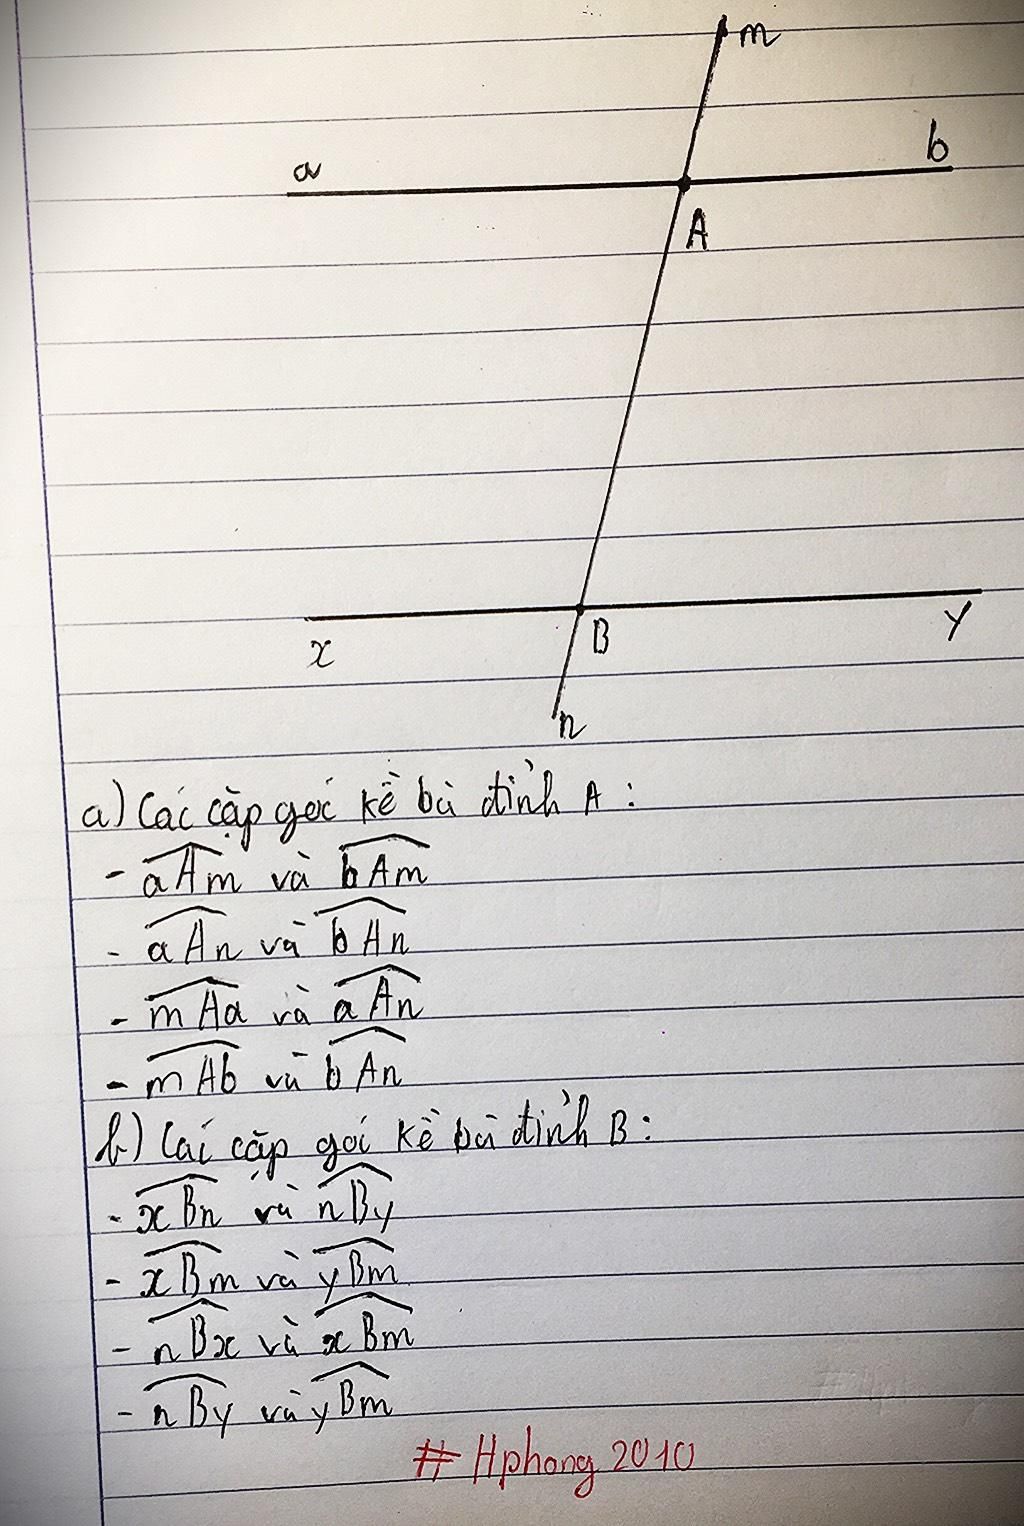 m
a
b
A
x
B
y
n
a) Các cặp góc kề bù đỉnh A :
- aAm và bAm
- aAn và bAn
- mAa và aAn
- mAb và bAn
b) Các cặp góc kề bù đỉnh B :
- xBn và nBy
- xBm và yBm
- nBx và xBm
- nBy và yBm
# Hphong 2010